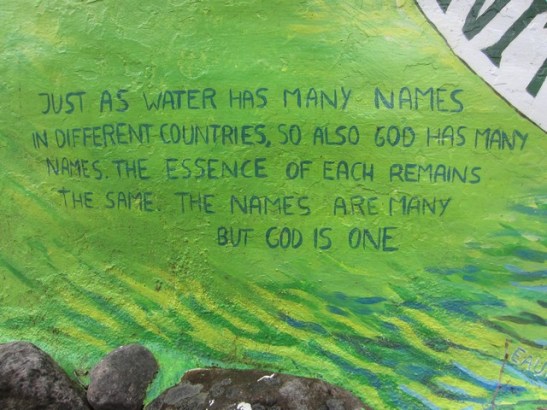 JUST AS WATER HAS MANY NAMES
IN DIFFERENT COUNTRIES, SO ALSO GOD HAS MANY
NAMES. THE ESSENCE OF EACH REMAINS
THE SAME. THE NAMES ARE MANY
BUT GOD IS ONE